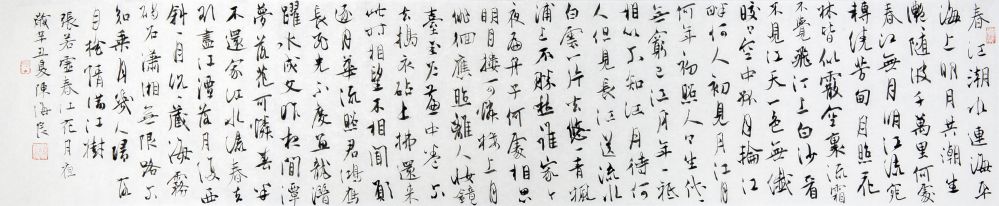 春江潮水連海平
海上明月共潮生
灩灩隨波千萬里何處
春江無月明江流宛
轉繞芳甸月照花
林皆似霰空裏流霜
不覺飛汀上白沙看
不見江天一色無纖
皎皎空中孤月輪江
畔何人初見月江月
何年初照人人生代
無窮已江月年年祗
相似不知江月待何
人但見長江送流水
白雲一片去悠悠青楓
浦上不勝愁誰家今
夜扁舟子何處相思
明月樓可憐樓上月
徘徊應照離人妝鏡
臺玉戶簾中卷不
去搗衣砧上拂還來
此時相望不相聞願
逐月華流照君鴻雁
長飛光不度魚龍潛
躍水成文昨夜閒潭
夢落花可憐春半
不還家江水流春去
欲盡江潭落月復西
斜斜月沉沉藏海霧
碣石瀟湘無限路不
知乘月幾人歸落
月搖情滿江樹
張若虛春江花月夜
歲辛丑夏陳海良